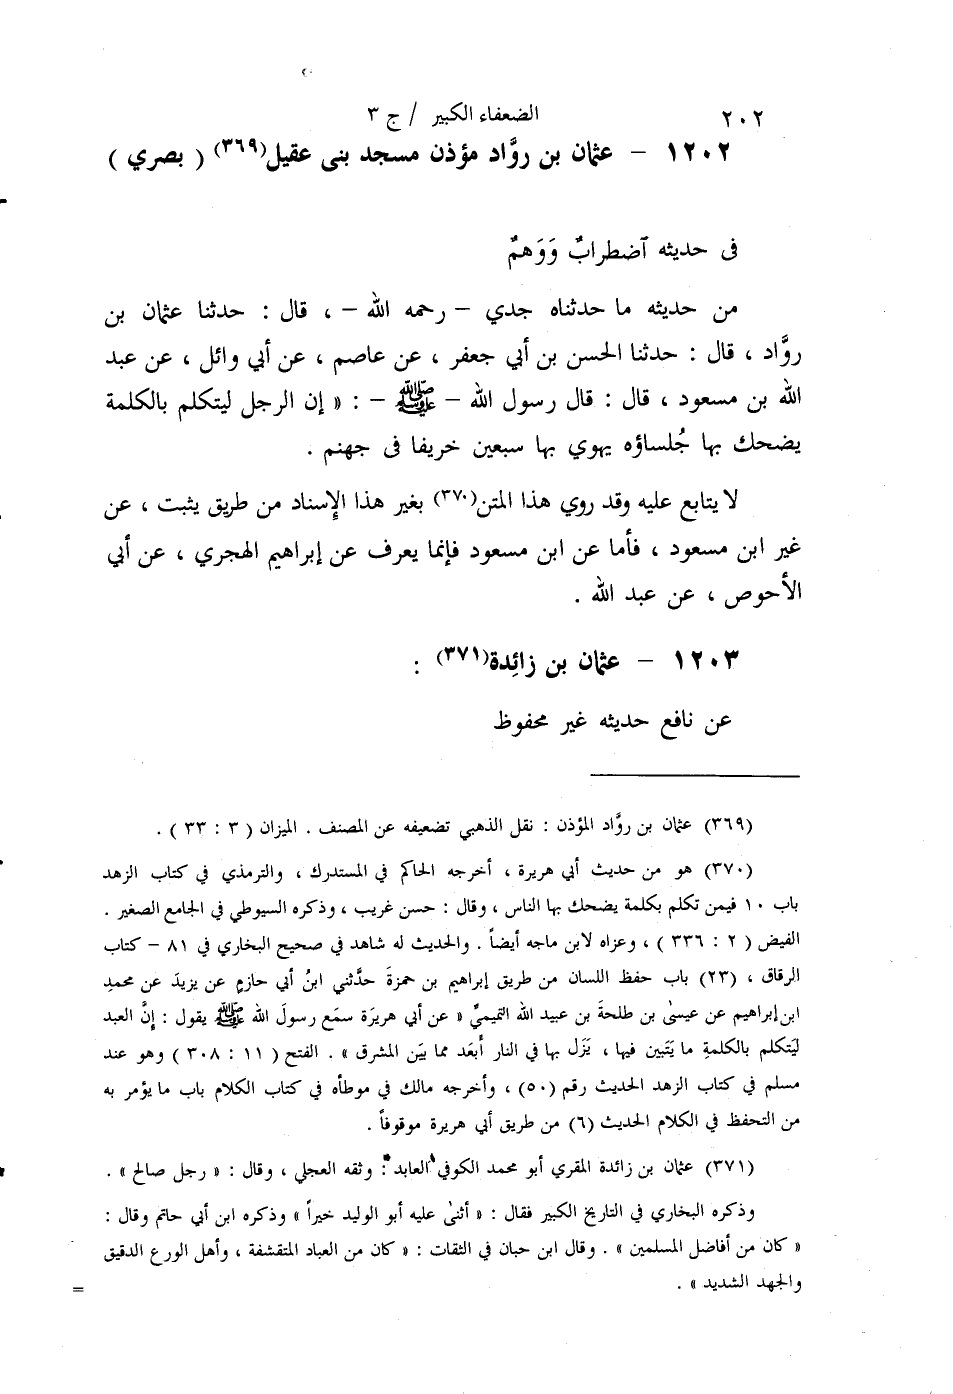 ٢٠٢ الضعفاء الكبير / ج ٣
١٢٠٢ – عثمان بن روَّاد مؤذن مسجد بنى عقيل(٣٦٩) ( بصري )
فى حديثه آضطرابٌ وَوَهمٌ
من حديثه ما حدثناه جدي – رحمه الله – ، قال : حدثنا عثمان بن
روَّاد ، قال : حدثنا الحسن بن أبي جعفر ، عن عاصم ، عن أبي وائل ، عن عبد
الله بن مسعود ، قال : قال رسول الله – ﷺ – : « إن الرجل ليتكلم بالكلمة
يضحك بها جُلساؤه يهوي بها سبعين خريفا فى جهنم .
لا يتابع عليه وقد روي هذا المتن(٣٧٠) بغير هذا الإسناد من طريق يثبت ، عن
غير ابن مسعود ، فأما عن ابن مسعود فإنما يعرف عن إبراهيم الهجري ، عن أبي
الأحوص ، عن عبد الله .
١٢٠٣ – عثمان بن زائِدة(٣٧١) :
عن نافع حديثه غير محفوظ
(٣٦٩) عثمان بن روَّاد المؤذن : نقل الذهبي تضعيفه عن المصنف . الميزان ( ٣ : ٣٣ ) .
(٣٧٠) هو من حديث أبي هريرة ، أخرجه الحاكم في المستدرك ، والترمذي في كتاب الزهد
باب ١٠ فيمن تكلم بكلمة يضحك بها الناس ، وقال : حسن غريب ، وذكره السيوطي في الجامع الصغير .
الفيض ( ٢ : ٣٣٦ ) ، وعزاه لابن ماجه أيضاً . والحديث له شاهد في صحيح البخاري في ٨١ – كتاب
الرقاق ، (٢٣) باب حفظ اللسان من طريق إبراهيم بن حمزةَ حدَّثني ابنُ أبي حازمٍ عن يزيدَ عن محمدِ
ابن إبراهيم عن عيسىٰ بن طلحةَ بن عبيد الله التميميِّ « عن أبي هريرَة سمَع رسولَ الله ﷺ يقول : إنَّ العبد
ليَتكلم بالكلمةِ ما يَتَبين فيها ، يَزَل بها في النار أَبعَد مما بيَن المشرق » . الفتح ( ١١ : ٣٠٨ ) وهو عند
مسلم في كتاب الزهد الحديث رقم (٥٠) ، وأخرجه مالك في موطأه في كتاب الكلام باب ما يؤمر به
من التحفظ في الكلام الحديث (٦) من طريق أبي هريرة موقوفاً .
(٣٧١) عثمان بن زائدة المقري أبو محمد الكوفي العابد : وثقه العجلي ، وقال : « رجل صالح » .
وذكره البخاري في التاريخ الكبير فقال : « أثنىٰ عليه أبو الوليد خيراً » وذكره ابن أبي حاتم وقال :
« كان من أفاضل المسلمين » . وقال ابن حبان في الثقات : « كان من العباد المتقشفة ، وأهل الورع الدقيق
والجهد الشديد » . =